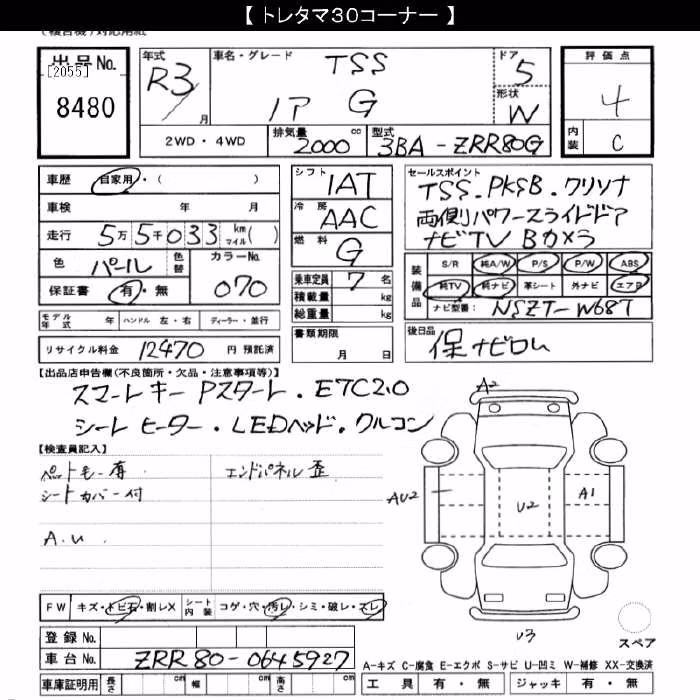 【 トレタマ30コーナー 】
出品No.
[2055]
8480
年式
R3
月
車名・グレード
TSS
ノア G
ドア
5
形状
W
評価点
4
内装
C
2WD・4WD
排気量
2000 cc
型式
3BA-ZRR80G
車歴 自家用・( )
車検 年 月
走行 5万5千033 km マイル( )
色 パール 色替
カラーNo.
070
保証書 有・無
シフト
IAT
冷房
AAC
燃料
G
乗車定員 7 名
積載量 kg
総重量 kg
セールスポイント
TSS.PKSB.クリソナ
両側パワースライドドア
ナビTV Bカメラ
装備品
S/R 純A/W P/S P/W ABS
純TV 純ナビ 革シート 外ナビ エアB
ナビ型番: NSZT-W68T
モデル年式 年 ハンドル 左・右 ディーラー・並行
リサイクル料金 12470 円 預託済
書類期限
月 日
後日品
保ナビロム
【出品店申告欄(不良箇所・欠品・注意事項等)】
スマートキー Pスタート.ETC2.0
シートヒーター.LEDヘッド.クルコン
【検査員記入】
ペット毛有
シートカバー付
A.U
エンドパネル歪
A2
AU2
U2
A1
U3
スペア
FW キズ・トビ石・割レX シート内装 コゲ・穴・汚レ・シミ・破レ・スレ
登録No.
車台No. ZRR80-0645927
A-キズ C-腐食 E-エクボ S-サビ U-凹ミ W-補修 XX-交換済
車庫証明用 長さ cm 幅 cm 高さ cm
工具 有・無 ジャッキ 有・無